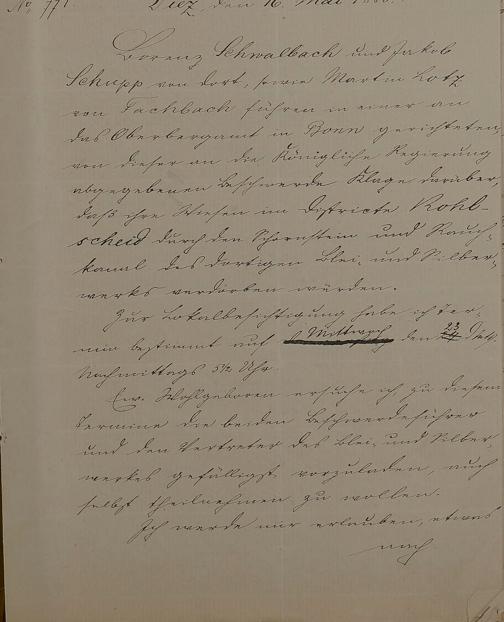 No 771.
Diez, den 16. Mai
Lorenz Schwalbach und Jakob
Schupp von dort, sowie Martin Lotz
von Fachbach führen in einer an
das Oberbergamt in Bonn gerichteten,
von dieser an die Königliche Regierung
abgegebenen Beschwerde Klage darüber,
daß ihre Wiesen im Districte Kohl-
scheid durch den Schornstein und Rauch-
kanal des dortigen Blei- und Silber-
werks verdorben würden.
Zur Lokalbesichtigung habe ich Ter-
min bestimmt auf Mittwoch den 23 d. Mts.
Nachmittags 5½ Uhr.
Euer Wohlgeboren ersuche ich zu diesem
Termine die beiden Beschwerdeführer
und den Vertreter des Blei- und Silber
werkes gefälligst vorzuladen, auch
selbst theilnehmen zu wollen.
Ich werde mir erlauben, etwas
nach